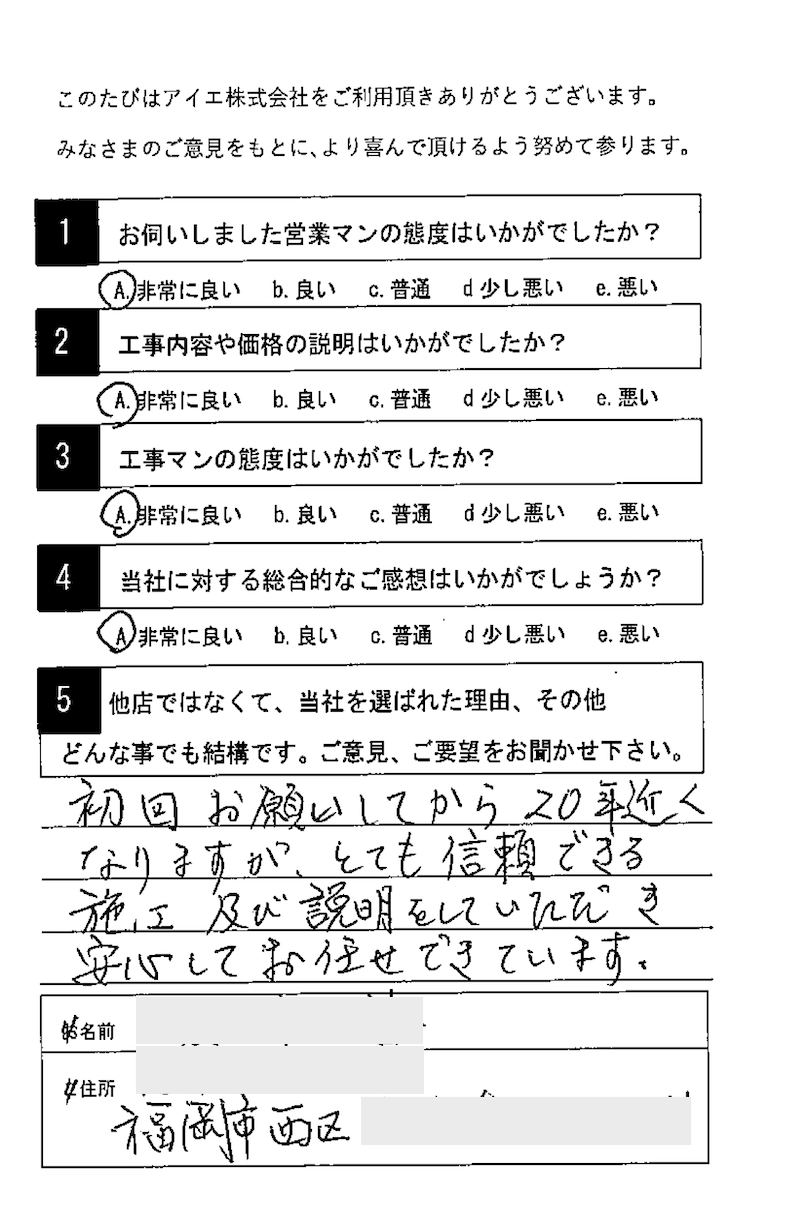 このたびはアイエ株式会社をご利用頂きありがとうございます。
みなさまのご意見をもとに、より喜んで頂けるよう努めて参ります。
1 お伺いしました営業マンの態度はいかがでしたか？
A.非常に良い b.良い c.普通 d少し悪い e.悪い
2 工事内容や価格の説明はいかがでしたか？
A.非常に良い b.良い c.普通 d少し悪い e.悪い
3 工事マンの態度はいかがでしたか？
A.非常に良い b.良い c.普通 d少し悪い e.悪い
4 当社に対する総合的なご感想はいかがでしょうか？
A非常に良い b.良い c.普通 d少し悪い e.悪い
5 他店ではなくて、当社を選ばれた理由、その他
どんな事でも結構です。ご意見、ご要望をお聞かせ下さい。
初回お願いしてから20年近く
なりますが、とても信頼できる
施工及び説明をしていただき
安心してお任せできています。
お名前
ご住所
福岡市西区